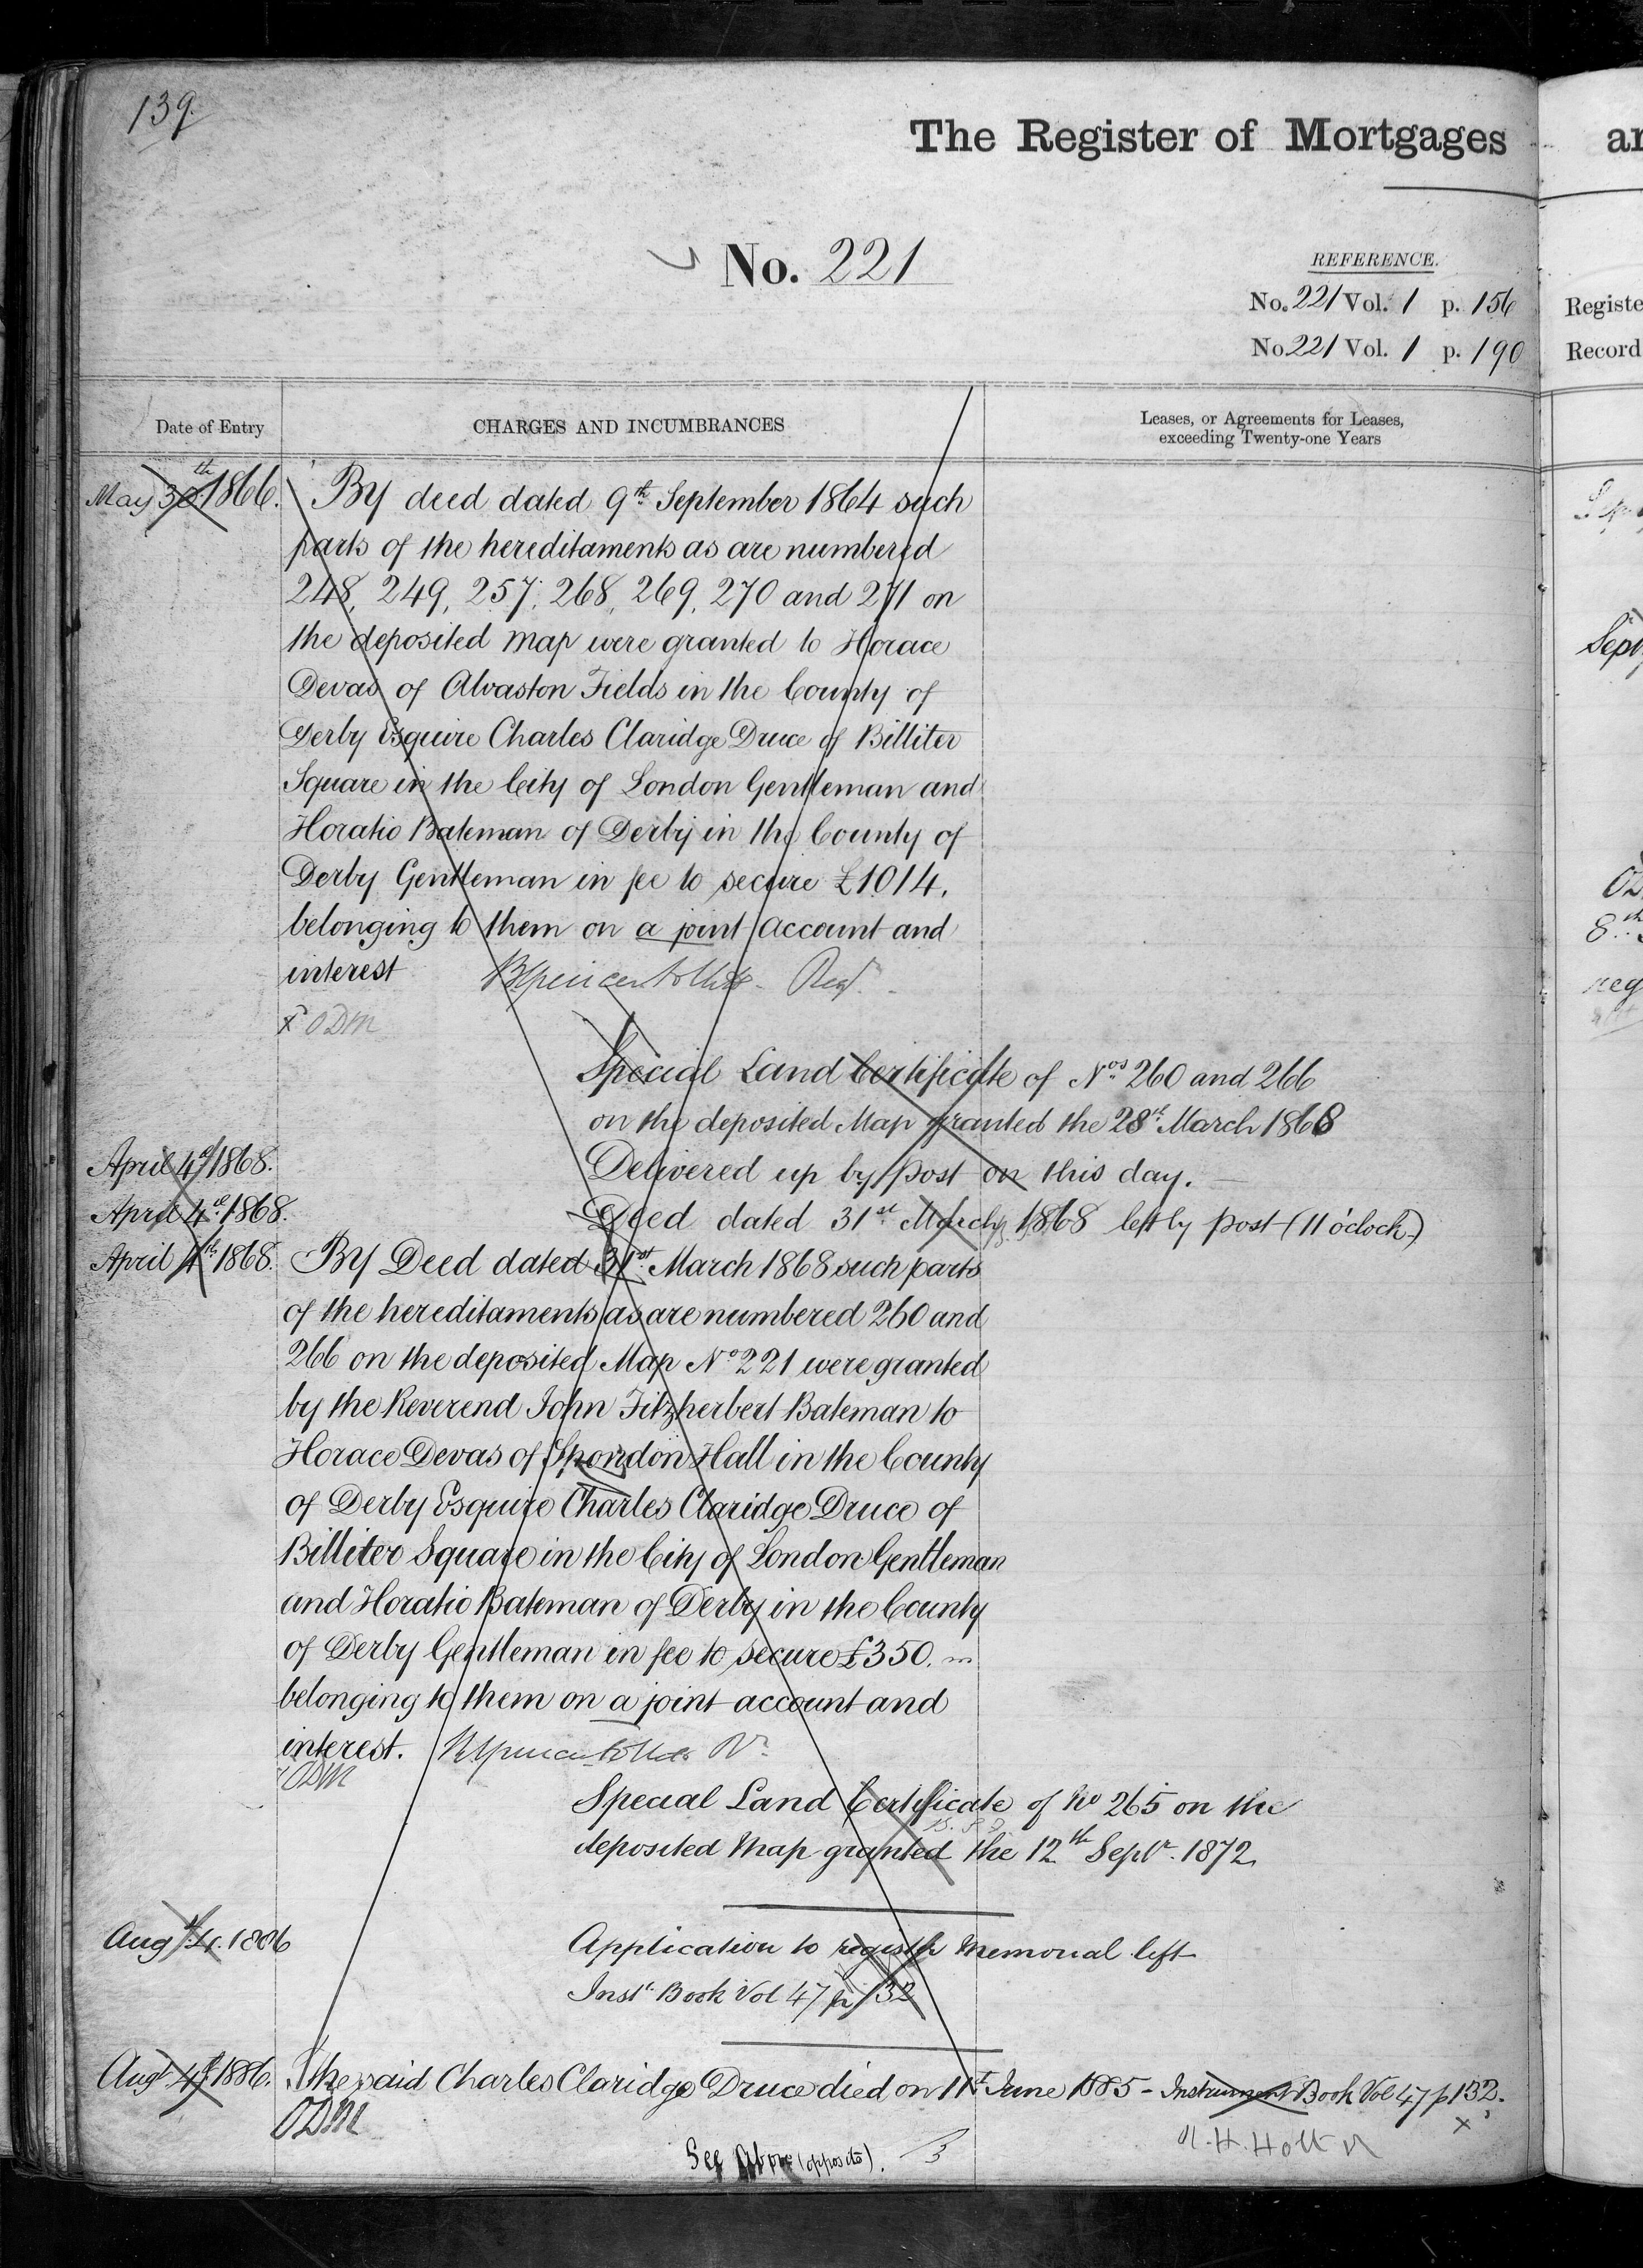 139.
The Register of Mortgages
No. 221
REFERENCE.
No. 221 Vol. 1 p. 156
No 221 Vol. 1 p. 190
Registe
Record
Date of Entry
CHARGES AND INCUMBRANCES
Leases, or Agreements for Leases,
exceeding Twenty-one Years
May 30th 1866. By deed dated 9th September 1864 such
parts of the hereditaments as are numbered
248, 249, 257, 268, 269, 270 and 271 on
the deposited map were granted to Horace
Devas of Alvaston Fields in the County of
Derby Esquire Charles Claridge Druce of Billiter
Square in the City of London Gentleman and
Horatio Bateman of Derby in the County of
Derby Gentleman in fee to secure £1014.
belonging to them on a joint account and
interest
ODM
Special Land Certificate of Nos 260 and 266
on the deposited Map granted the 28th March 1868
April 4th 1868. Delivered up by post on this day.
April 4th 1868. Deed dated 31st March 1868 left by post (11 o'clock)
April 4th 1868. By Deed dated 31st March 1868 such parts
of the hereditaments as are numbered 260 and
266 on the deposited Map No 221 were granted
by the Reverend John Fitzherbert Bateman to
Horace Devas of Spondon Hall in the County
of Derby Esquire Charles Claridge Druce of
Billiter Square in the City of London Gentleman
and Horatio Bateman of Derby in the County
of Derby Gentleman in fee to secure £350.
belonging to them on a joint account and
interest.
ODM
Special Land Certificate of No 265 on the
deposited Map granted the 12th Septr. 1872
Augt. 4. 1886 Application to register Memorial left
Instt. Book Vol 47 p 132
Augt 4th 1886. The said Charles Claridge Druce died on 11th June 1885 - Instrument Book Vol 47 p 132.
ODM
H. H. Holt
See Above (opposite).